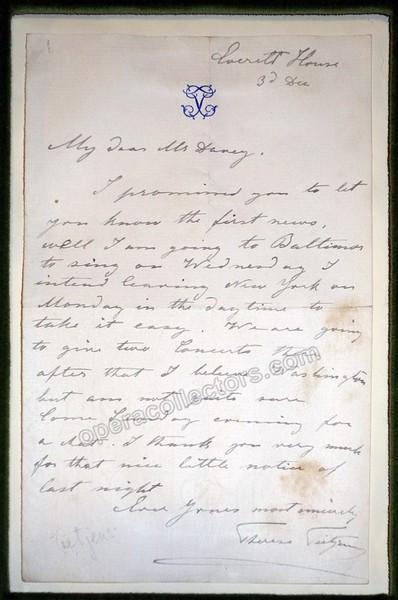 Everett House
3d Dec
My dear Mr Davey.
I promised you to let
you know the first news,
well I am going to Baltimore
to sing on Wednesday I
intend leaving New York on
Monday in the daytime to
take it easy. We are going
to give two Concerts
after that I believe Washington
but am not quite sure
Come Sunday evening for
a chat. I thank you very much
for that nice little notice of
last night
Ever Yours most sincerely
Therese Tietjens
Tietjens
operacollectors.com